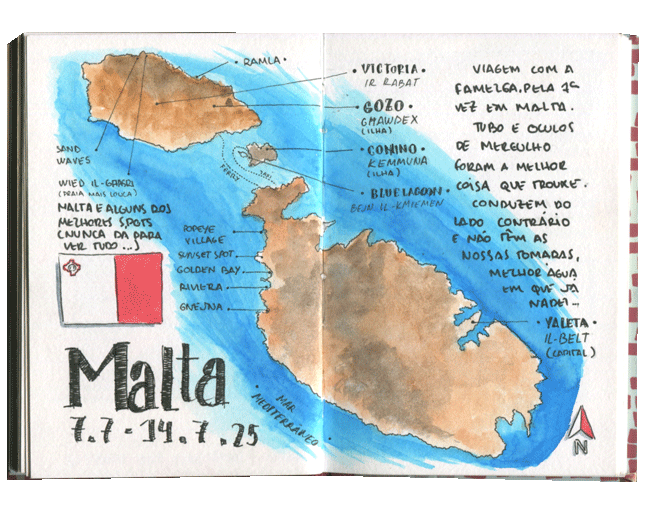 • RAMLA •
SAND
WAVES
WIED IL-GĦASRI
(PRAIA MAIS LOUCA)
MALTA E ALGUNS DOS
MELHORES SPOTS
(NUNCA DÁ PARA
VER TUDO...)
FERRY
POPEYE
VILLAGE
SUNSET SPOT
GOLDEN BAY
RIVIERA
GNEJNA
Malta
7.7-14.7.25
• MAR
MEDITERRÂNEO •
• VICTORIA •
IR RABAT
GOZO •
GĦAWDEX
(ILHA)
• COMINO •
KEMMUNA
(ILHA)
• BLUE LAGOON •
BEJN IL-KMIEMEN
VIAGEM COM A
FAMELGA, PELA 1ª
VEZ EM MALTA.
TUBO E OCULOS
DE MERGULHO
FORAM A MELHOR
COISA QUE TROUXE.
CONDUZEM DO
LADO CONTRÁRIO
E NÃO TÊM AS
NOSSAS TOMADAS,
MELHOR ÁGUA
EM QUE JÁ
NADEI...
• VALETA •
IL-BELT
(CAPITAL)
N